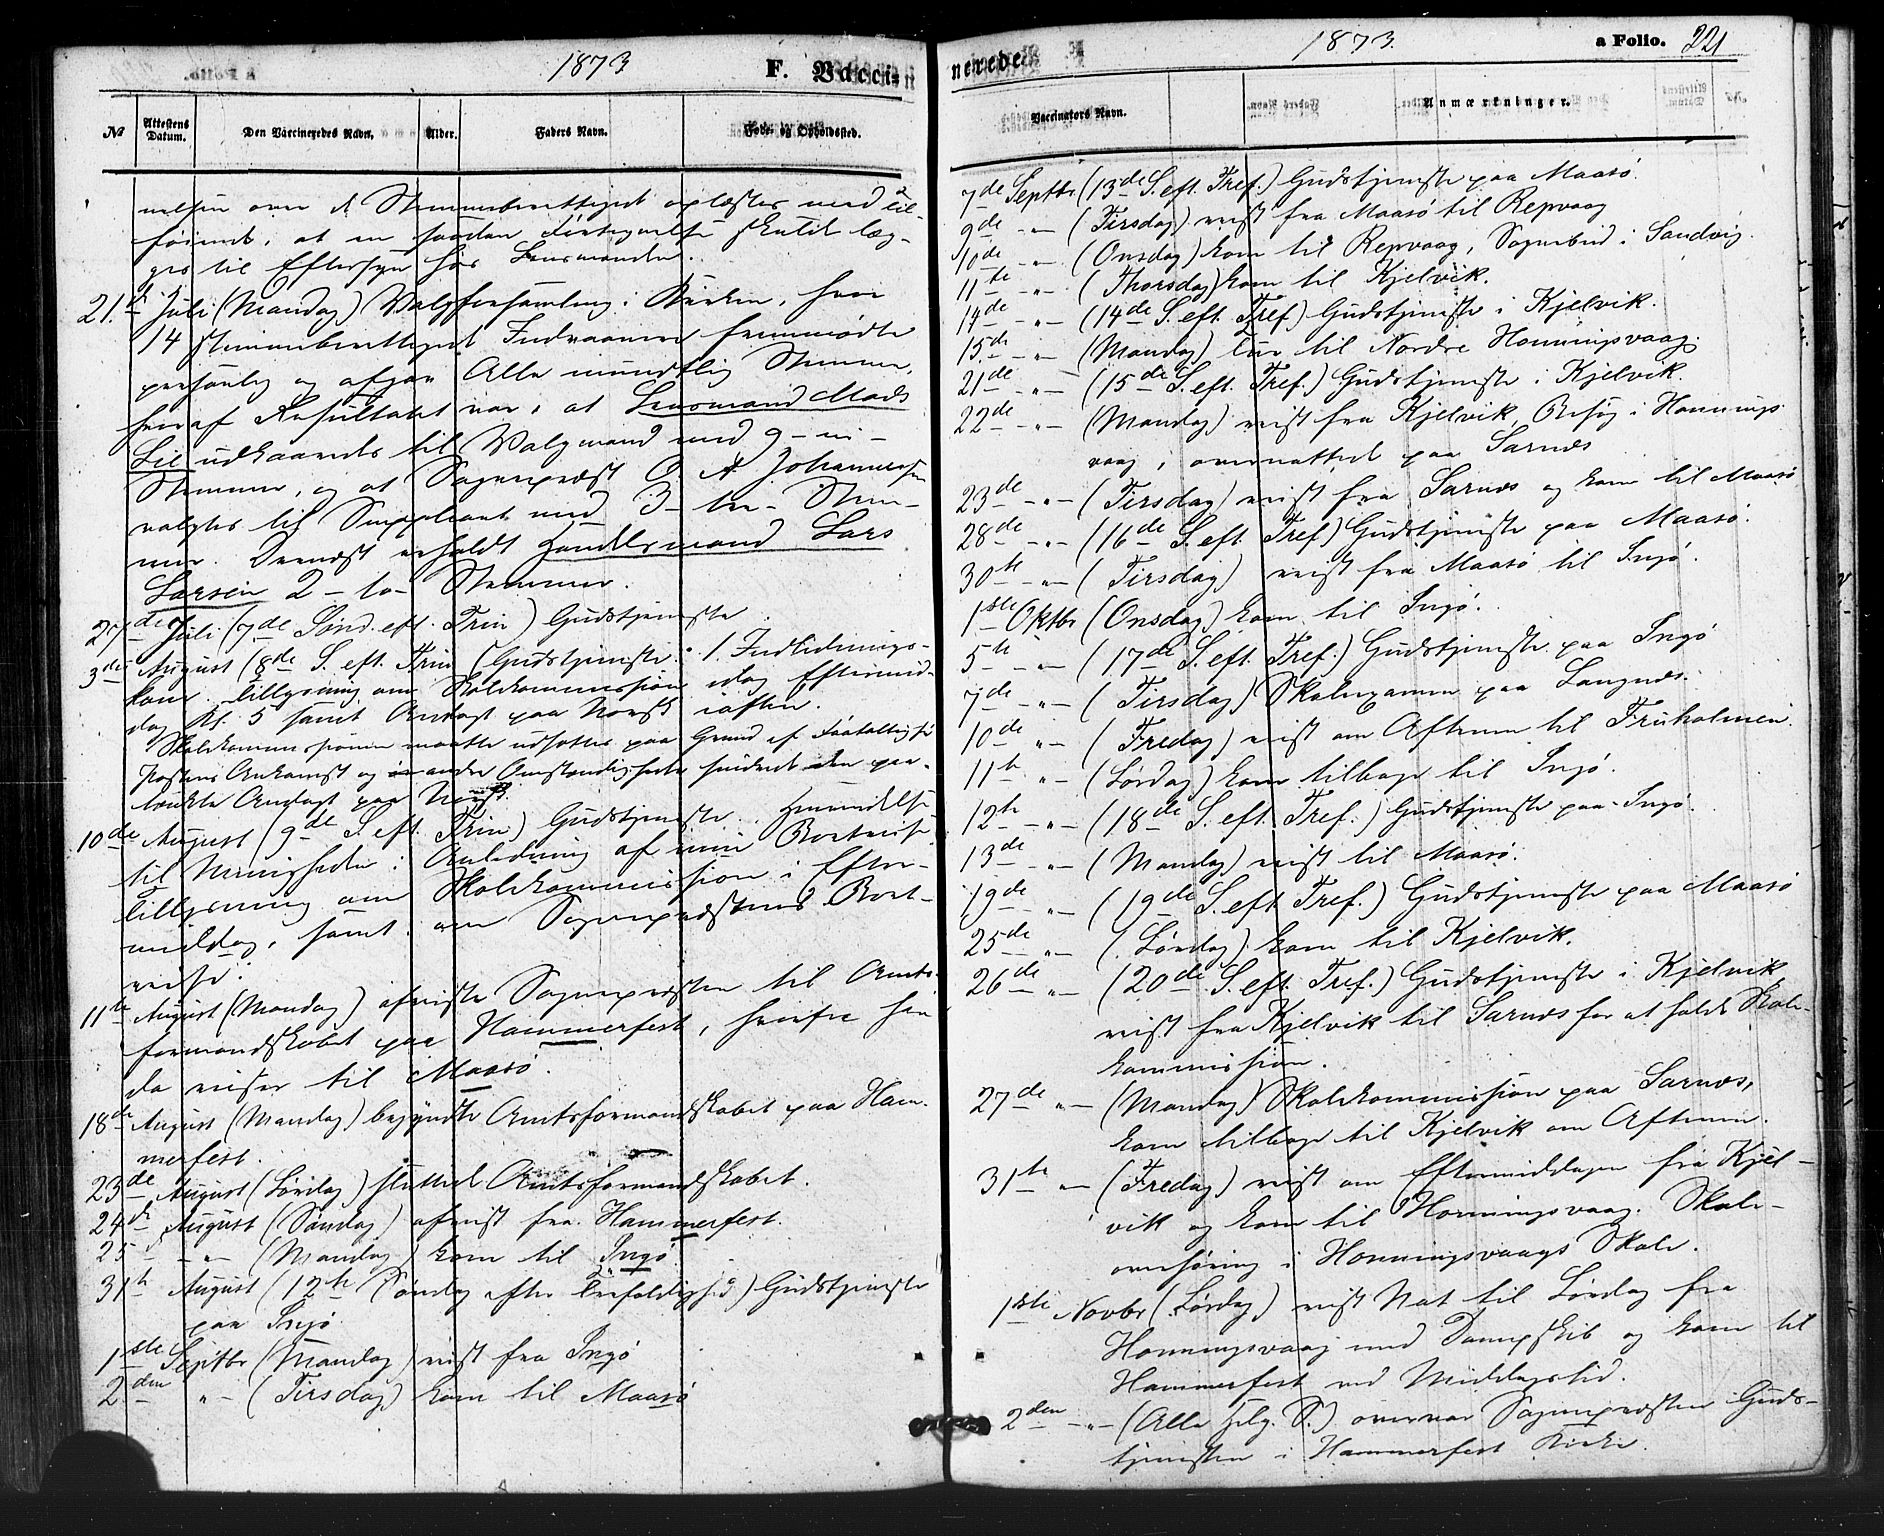 1873
F. Vacci-
№ Attestens Datum. Den Vaccineredes Navn. Alder. Faders Navn. Føde- og Opholdssted.
nelsen over de Stemmeberettigede oplæstes med Til-
føiende, at en saadan Fortegnelse skulde læg-
ges til Eftersyn hos Lensmanden.
21de Juli (Mandag) Valgforsamling i Kirken, hvor
14 stemmeberettigede Indvaanere fremmødte
personlig og afgav Alle mundtlig Stemme,
hvoraf Resultatet var, at Lensmand Mads
Lie udkaaredes til Valgmand med 9 - ni -
Stemmer, og at Sognepræst O. A. Johannessen
valgtes til Suppleant med 3 - tre - Stem-
mer. Dernæst erholdt Handelsmand Lars
Larsen 2 - to - Stemmer.
27de Juli (7de Sønd. eft. Trin) Gudstjeneste.
3die August (8de S. eft. Trin) Gudstjeneste. 1. Indlednings-
kone. Tillysning om Skolekommission idag Eftermid-
dag Kl. 5 samt Andagt paa Norsk iaften.
Skolekommissionen maatte udsættes paa Grund af Faatallighed
Postens Ankomst og andre Omstændigheder hindrede den paa-
tænkte Andagt paa Norsk.
10de August (9de S. eft. Trin) Gudstjeneste. Henvendelse
til Menigheden i Anledning af min Bortreise
Tillysning om Skolekommission i Efter-
middag, samt om Sognepræstens Bort-
reise.
11te August (Mandag) afreiste Sognepræsten til Amts-
formandskabet paa Hammerfest, hvorfra han
da reiser til Maasø.
18de August (Mandag) begyndte Amtsformandskabet paa Ham-
merfest.
23de August (Lørdag) sluttede Amtsformandskabet.
24de August (Søndag) afreist fra Hammerfest.
25 -"- (Mandag) kom til Ingø
31te August (12te Søndag efter Trefoldighed) Gudstjeneste
paa Ingø
1ste Septbr (Mandag) reist fra Ingø
2den -"- (Tirsdag) kom til Maasø
nerede.
1873.
a Folio. 221
Vaccinators Navn. Anmærkninger.
7de Septbr (13de S. eft. Tref.) Gudstjeneste paa Maasø.
9de -"- (Tirsdag) reist fra Maasø til Repvaag
10de -"- (Onsdag) kom til Repvaag, Sognebud i Sandvig.
11te -"- (Thorsdag) kom til Kjelvik.
14de -"- (14de S. eft. Tref.) Gudstjeneste i Kjelvik.
15de -"- (Mandag) Tur til Nordre Honningsvaag.
21de -"- (15de S. eft. Tref.) Gudstjeneste i Kjelvik.
22de -"- (Mandag) reist fra Kjelvik Besøg i Honnings
vaag, overnattede paa Sarnæs
23de -"- (Tirsdag) reist fra Sarnæs og kom til Maasø
28de -"- (16de S. eft. Tref) Gudstjeneste paa Maasø.
30te -"- (Tirsdag) reist fra Maasø til Ingø.
1ste Oktbr (Onsdag) kom til Ingø.
5te -"- (17de S. eft. Tref.) Gudstjeneste paa Ingø
7de -"- (Tirsdag) Skoleexamen paa Langnæs.
10de -"- (Fredag) reist om Aftenen til Fruholmen.
11te -"- (Lørdag) kom tilbage til Ingø.
12te -"- (18de S. eft. Tref.) Gudstjeneste paa Ingø.
13de -"- (Mandag) reist til Maasø.
19de -"- (19de S. eft. Tref.) Gudstjeneste paa Maasø
25de -"- (Lørdag) kom til Kjelvik.
26de -"- (20de S. eft. Tref.) Gudstjeneste i Kjelvik
reist fra Kjelvik til Sarnæs for at holde Skole-
kommission.
27de -"- (Mandag) Skolekommission paa Sarnæs,
kom tilbage til Kjelvik om Aftenen.
31te -"- (Fredag) reist om Eftermiddagen fra Kjel-
vik og kom til Honningsvaag. Skole-
overhøring i Honningsvaags Skole.
1ste Novbr (Lørdag) reist Nat til Lørdag fra
Honningsvaag med Dampskib og kom til
Hammerfest ved Middagstid.
2den -"- (Alle Helg. S.) overvar Sognepræsten Guds-
tjenesten i Hammerfest Kirke.